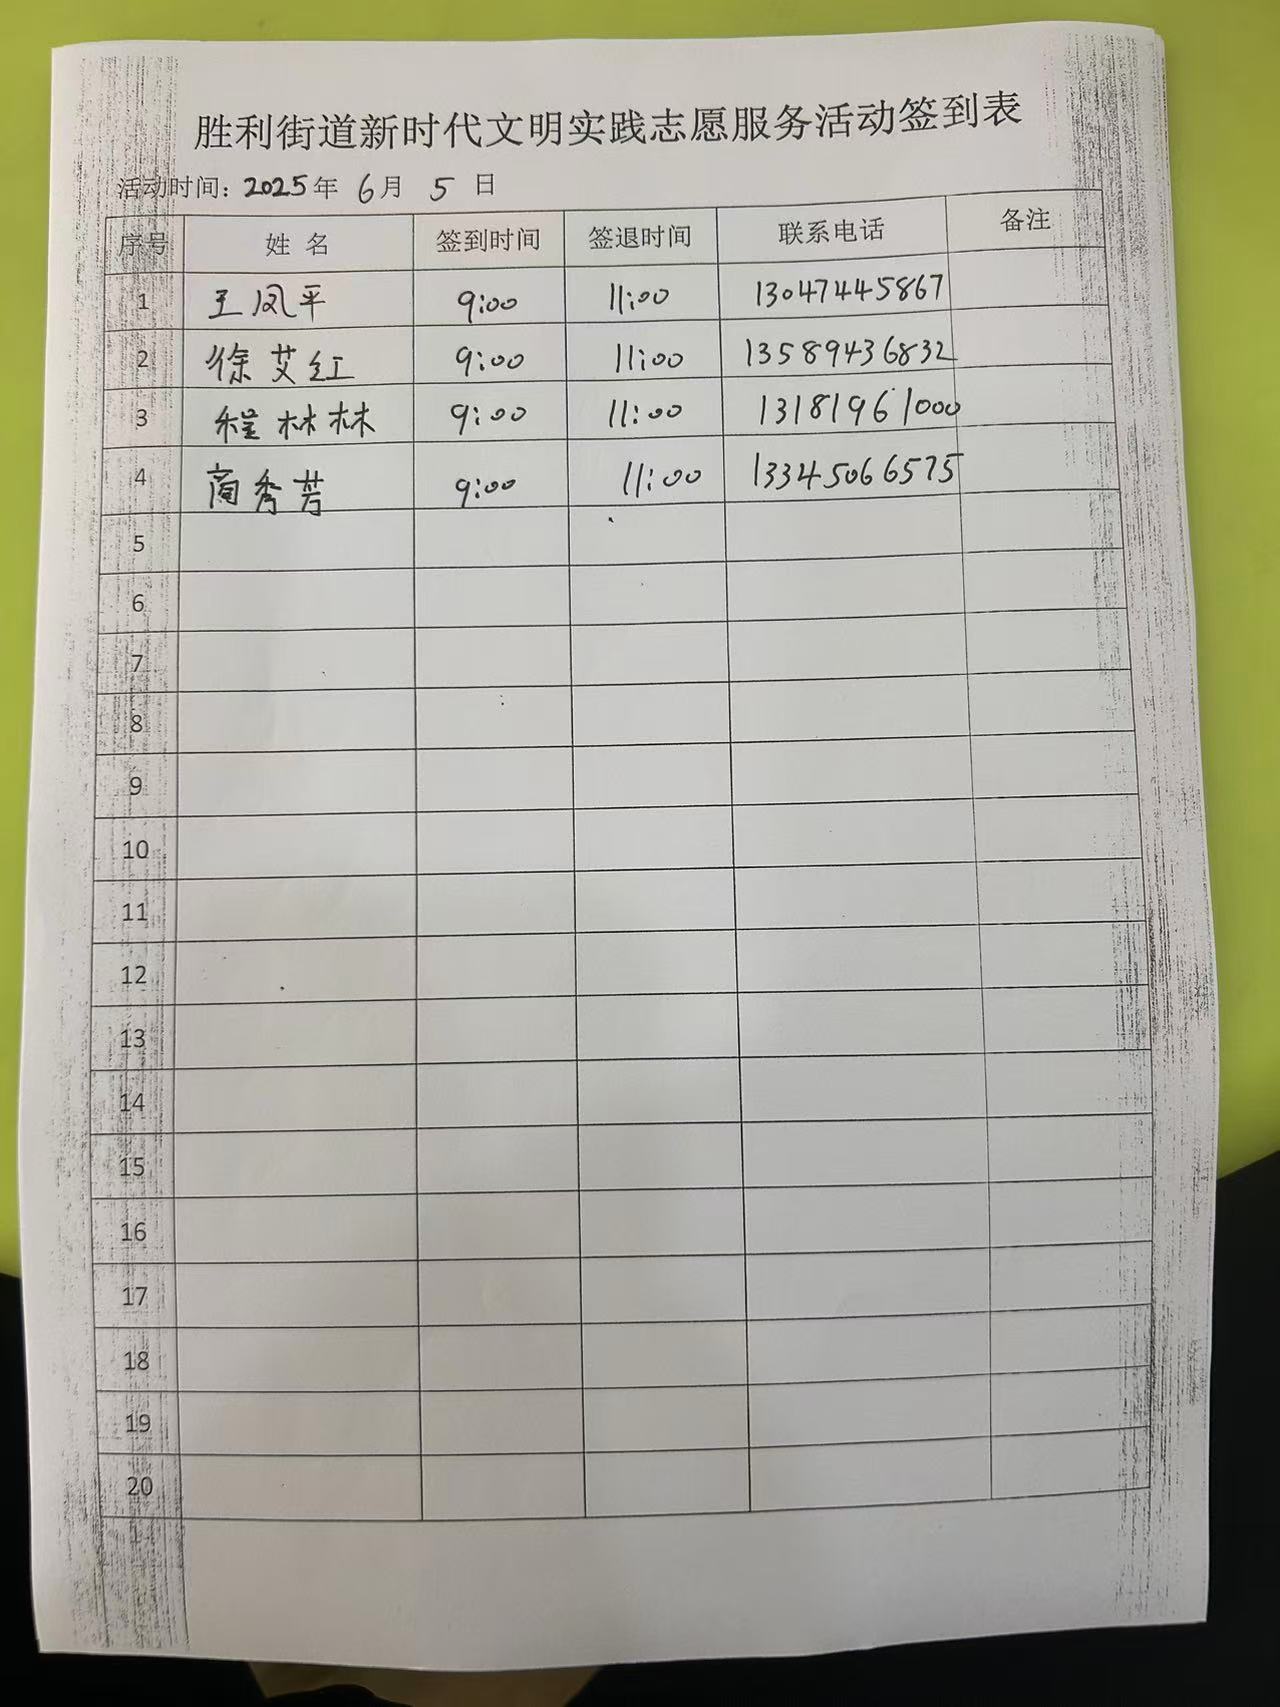 胜利街道新时代文明实践志愿服务活动签到表
活动时间：2025年 6月 5日
序号 姓 名 签到时间 签退时间 联系电话 备注
1 王凤平 9:00 11:00 13047445867
2 徐艾红 9:00 11:00 13589436832
3 程林林 9:00 11:00 13181961000
4 商秀芳 9:00 11:00 13345066575
5
6
7
8
9
10
11
12
13
14
15
16
17
18
19
20